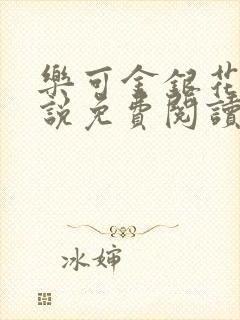 樂可金銀花
說免費閱讀
冰婶